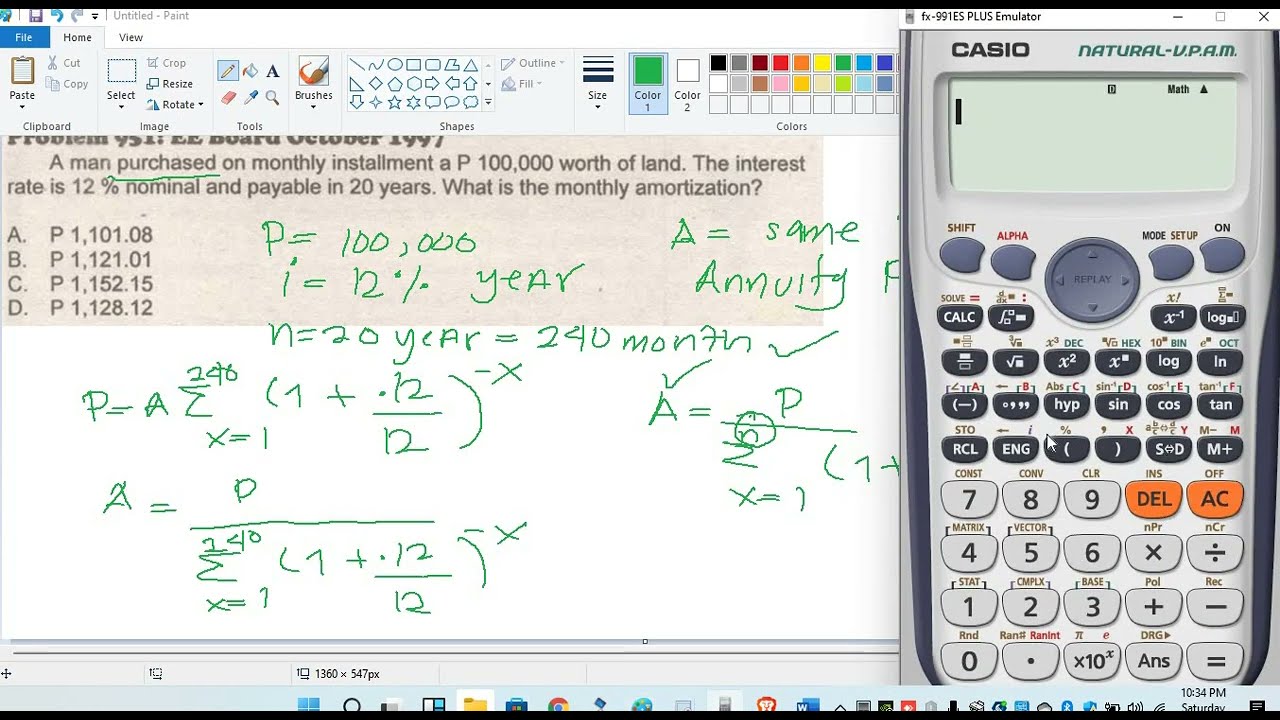 Untitled - Paint
fx-991ES PLUS Emulator
File
Home
View
Cut
Copy
Paste
Clipboard
Select
Crop
Resize
Rotate
Image
A
Tools
Brushes
Shapes
Outline
Fill
Size
Color 1
Color 2
Colors
Problem 951: EE Board October 1997
A man purchased on monthly installment a P 100,000 worth of land. The interest
rate is 12 % nominal and payable in 20 years. What is the monthly amortization?
A. P 1,101.08
B. P 1,121.01
C. P 1,152.15
D. P 1,128.12
P = 100,000
i = 12 % year
n=20 year = 240 month
A = same
Annuity
P= A 240 Σ x=1 (1 + .12/12)^-x
A = P / 240 Σ x=1 (1 + .12/12)^-x
A = P / n Σ x=1 (1+
CASIO
NATURAL-V.P.A.M.
D Math ▲
SHIFT ALPHA MODE SETUP ON
REPLAY
SOLVE = d/dx : x! Σ
CALC ∫ x⁻¹ log
x³ DEC ˣ√ HEX 10ˣ BIN eˣ OCT
√ x² xˣ log ln
∠ A ← B Abs C sin⁻¹ D cos⁻¹ E tan⁻¹ F
(−) °’’’ hyp sin cos tan
STO ← i % , X a b/c⇔d/c Y M− M
RCL ENG ( ) S⇔D M+
CONST CONV CLR INS OFF
7 8 9 DEL AC
MATRIX VECTOR nPr nCr
4 5 6 × ÷
STAT CMPLX BASE Pol Rec
1 2 3 + −
Rnd Ran# RanInt π e DRG▶
0 . ×10ˣ Ans =
1360 × 547px
10:34 PM
Saturday